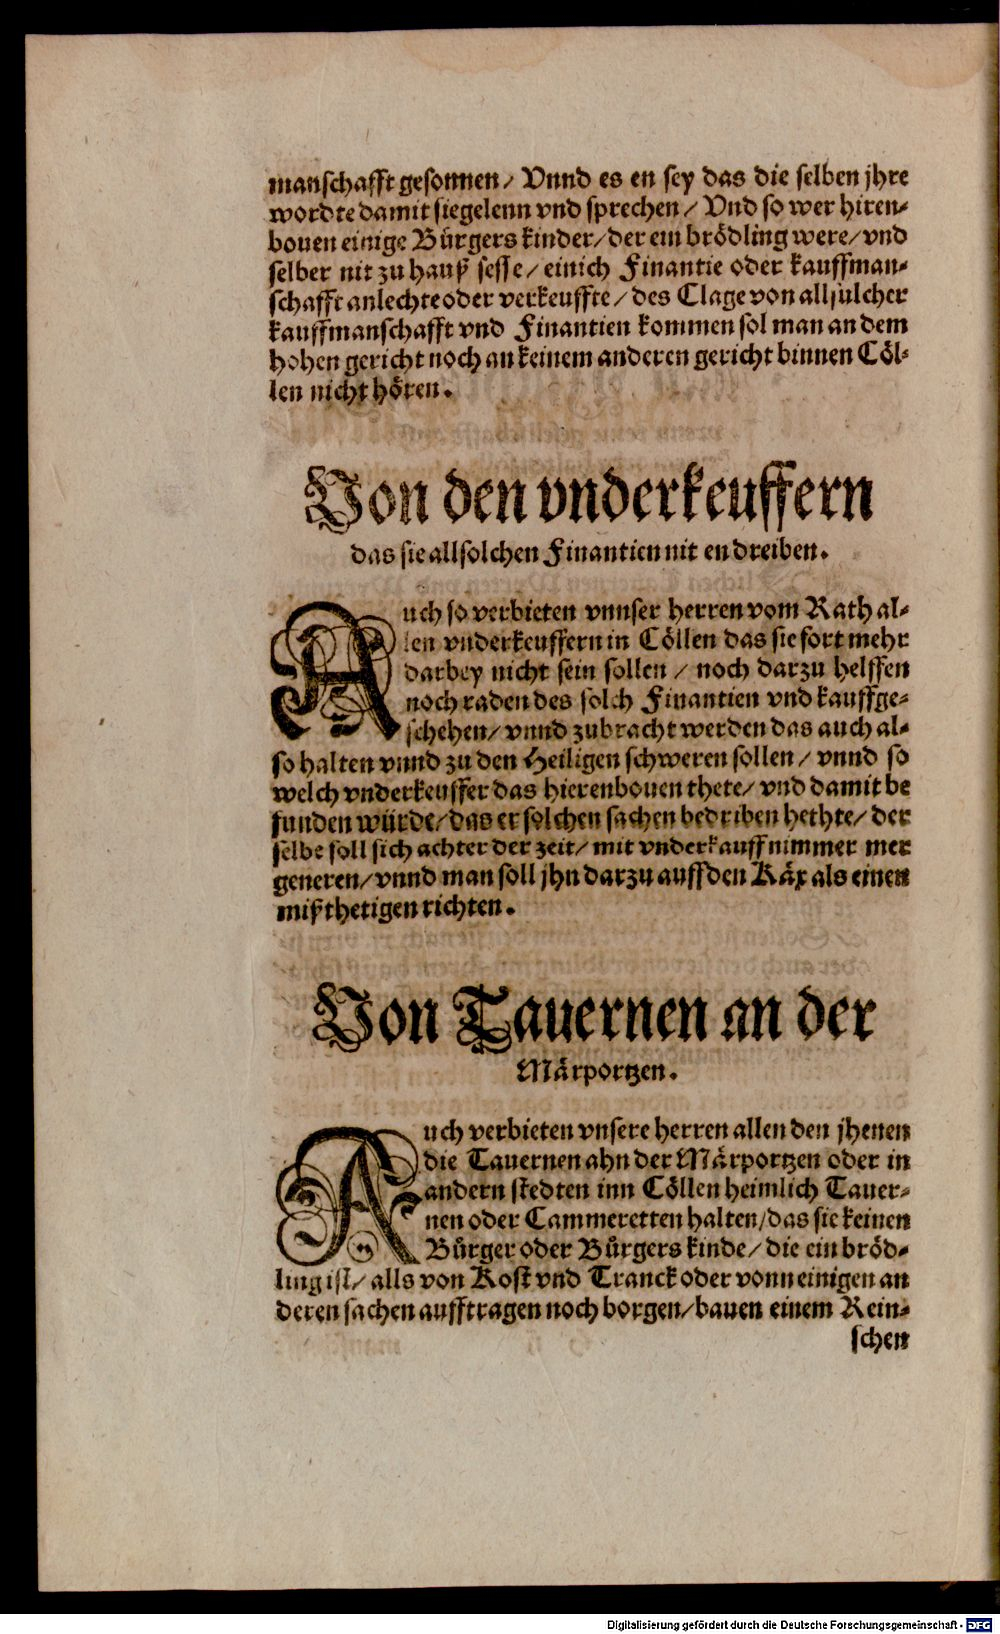 manschafft gesonnen / Vnnd es en sey das die selben jhre
wordte damit siegelenn vnd sprechen / Vnd so wer hiren-
bouen einige Bürgers kinder / der ein brödling were / vnd
selber nit zu hauß sesse / einich Finantie oder kauffman-
schafft anlechte oder verkeuffte / des Clage von all sulcher
kauffmanschafft vnd Finantien kommen sol man an dem
hohen gericht noch an keinem anderen gericht binnen Cöl-
len nicht hören.
Von den vnderkeuffern
das sie allsolchen Finantien nit en dreiben.
Auch so verbieten vnnser herren vom Rath al-
len vnderkeuffern in Cöllen das sie fort mehr
darbey nicht sein sollen / noch darzu helffen
noch raden des solch Finantien vnd kauffge-
schehen / vnnd zubracht werden das auch al-
so halten vnnd zu den Heiligen schweren sollen / vnnd so
welch vnderkeuffer das hierenbouen thete / vnd damit be
funden würde / das er solchen sachen bedriben hethte / der
selbe soll sich achter der zeit / mit vnderkauff nimmer mer
generen / vnnd man soll jhn darzu auff den Käx als einen
mißthetigen richten.
Von Tauernen an der
Märportzen.
Auch verbieten vnsere herren allen den jhenen
die Tauernen ahn der Märportzen oder in
andern stedten inn Cöllen heimlich Tauer-
nen oder Cammeretten halten / das sie keinen
Bürger oder Bürgers kinde / die ein bröd-
ling ist / alls von Kost vnd Tranck oder vonn einigen an
deren sachen aufftragen noch borgen / bauen einem Rein-
schen
Digitalisierung gefördert durch die Deutsche Forschungsgemeinschaft - DFG